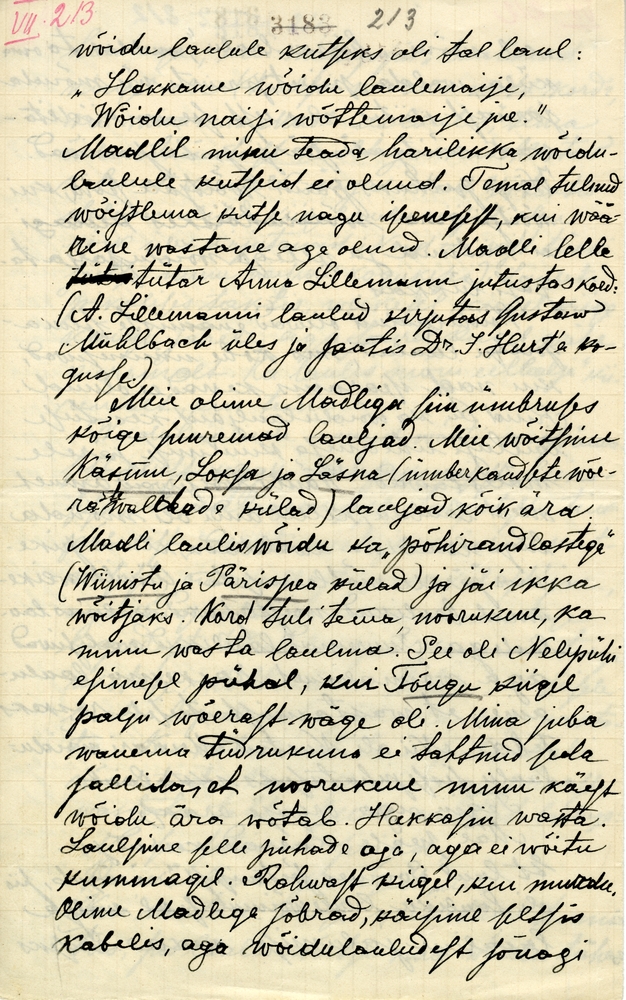 VII. 213 3183 213
wõidu laulule kutseks oli tal laul:
„Hakkame wõidu laulemaije,
Wõidu naisi wõttemaije jne."
Madlil minu teada harilikka wõidu-
laulule kutseid ei olnud. Temal tulnud
wõistlema kutse nagu iseenesest, kui wõä-
rine wastane aga olnud. Madli lelle
tütar Anna Lillemann jutustas koed:
(A. Lillemanni laulud kirjutas Gustaw
Mühlbach üles ja saatis Dr. J. Hurt'a ko-
gusse.)
Meie olime Madliga siin ümbruses
kõige suuremad lauljad. Meie wõitsime
Käsmu, Loksa ja Läsna (ümberkandsete wõe-
ra waldade külad) lauljad kõik ära.
Madli laulis wõidu ka „põhirandlastega"
(Wiinistu ja Pärispea külad) ja jäi ikka
wõitjaks. Kord tuli tema, noorukene, ka
minu wasta laulma. See oli Nelipühi
esimesel pühal, kui Tõugu kiigel
palju wõerast wäge oli. Mina juba
wanema tüdrukuna ei tahtnud seda
sallida, et noorukene minu käest
wõidu ära wõtab. Hakkasin wasta.
Laulsime selle pühade aja, aga ei wõitu
kummagil. Rahwast kiigel, kui murdu.
Olime Madliga sõbrad, käisime seltsis
kabelis, aga wõidulauludest sõnagi